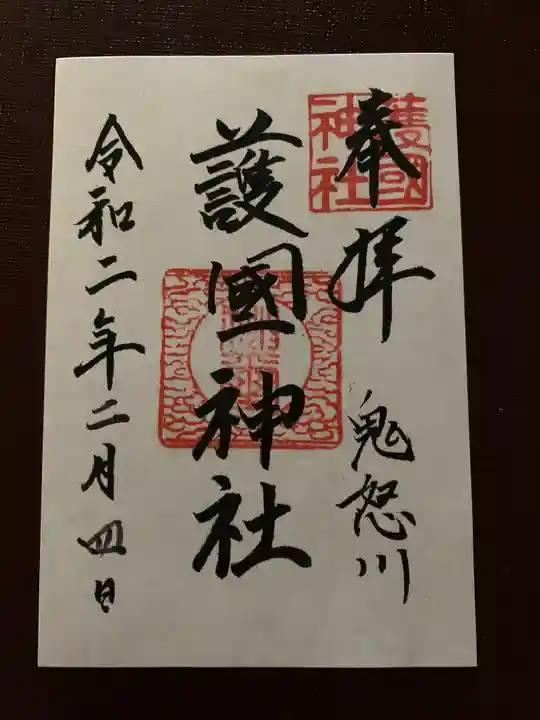 奉拝
鬼怒川
護國神社
護國神社
令和二年二月四日